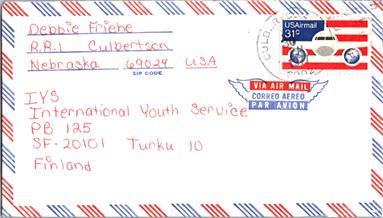 Debbie Friehe
R.R.1 Culbertson
Nebraska 69024 USA
ZIP CODE
USAirmail
31c
VIA AIR MAIL
CORREO AEREO
PAR AVION
IYS
International Youth Service
PB 125
SF-20101 Turku 10
Finland